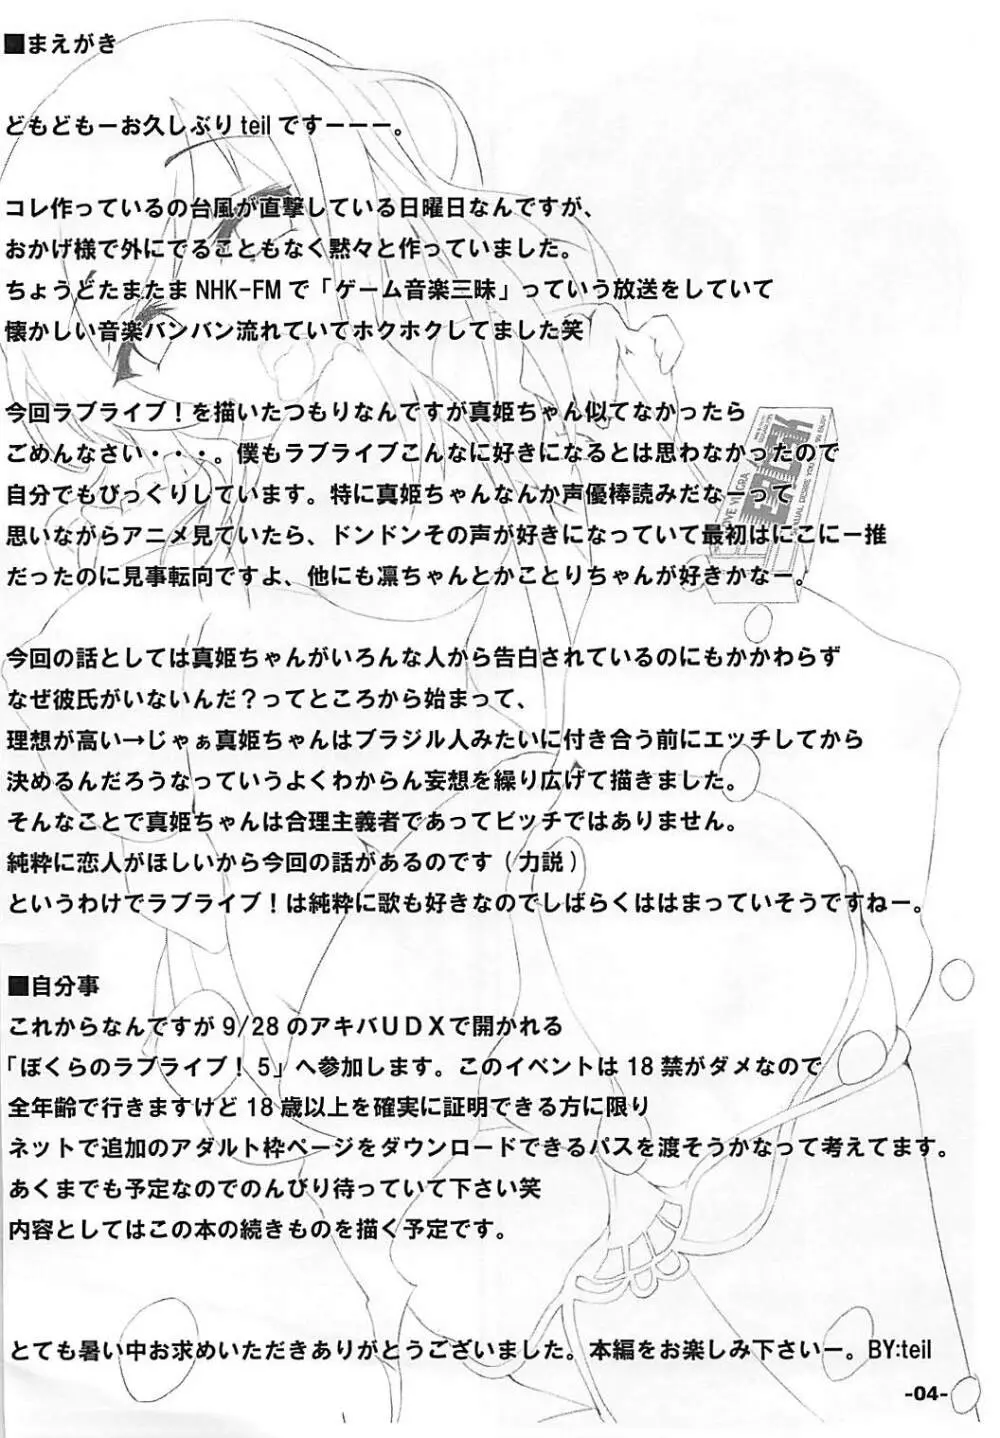 ■まえがき
どもどもーお久しぶりteilですーーー。
コレ作っているの台風が直撃している日曜日なんですが、
おかげ様で外にでることもなく黙々と作っていました。
ちょうどたまたまNHK-FMで「ゲーム音楽三昧」っていう放送をしていて
懐かしい音楽バンバン流れていてホクホクしてました笑
今回ラブライブ！を描いたつもりなんですが真姫ちゃん似てなかったら
ごめんなさい・・・。僕もラブライブこんなに好きになるとは思わなかったので
自分でもびっくりしています。特に真姫ちゃんなんか声優棒読みだなーって
思いながらアニメ見ていたら、ドンドンその声が好きになっていて最初はにこにー推
だったのに見事転向ですよ、他にも凛ちゃんとかことりちゃんが好きかなー。
今回の話としては真姫ちゃんがいろんな人から告白されているのにもかかわらず
なぜ彼氏がいないんだ？ってところから始まって、
理想が高い→じゃぁ真姫ちゃんはブラジル人みたいに付き合う前にエッチしてから
決めるんだろうなっていうよくわからん妄想を繰り広げて描きました。
そんなことで真姫ちゃんは合理主義者であってビッチではありません。
純粋に恋人がほしいから今回の話があるのです（力説）
というわけでラブライブ！は純粋に歌も好きなのでしばらくははまっていそうですねー。
■自分事
これからなんですが9/28のアキバＵＤＸで開かれる
「ぼくらのラブライブ！5」へ参加します。このイベントは18禁がダメなので
全年齢で行きますけど18歳以上を確実に証明できる方に限り
ネットで追加のアダルト枠ページをダウンロードできるパスを渡そうかなって考えてます。
あくまでも予定なのでのんびり待っていて下さい笑
内容としてはこの本の続きものを描く予定です。
とても暑い中お求めいただきありがとうございました。本編をお楽しみ下さいー。BY:teil
-04-